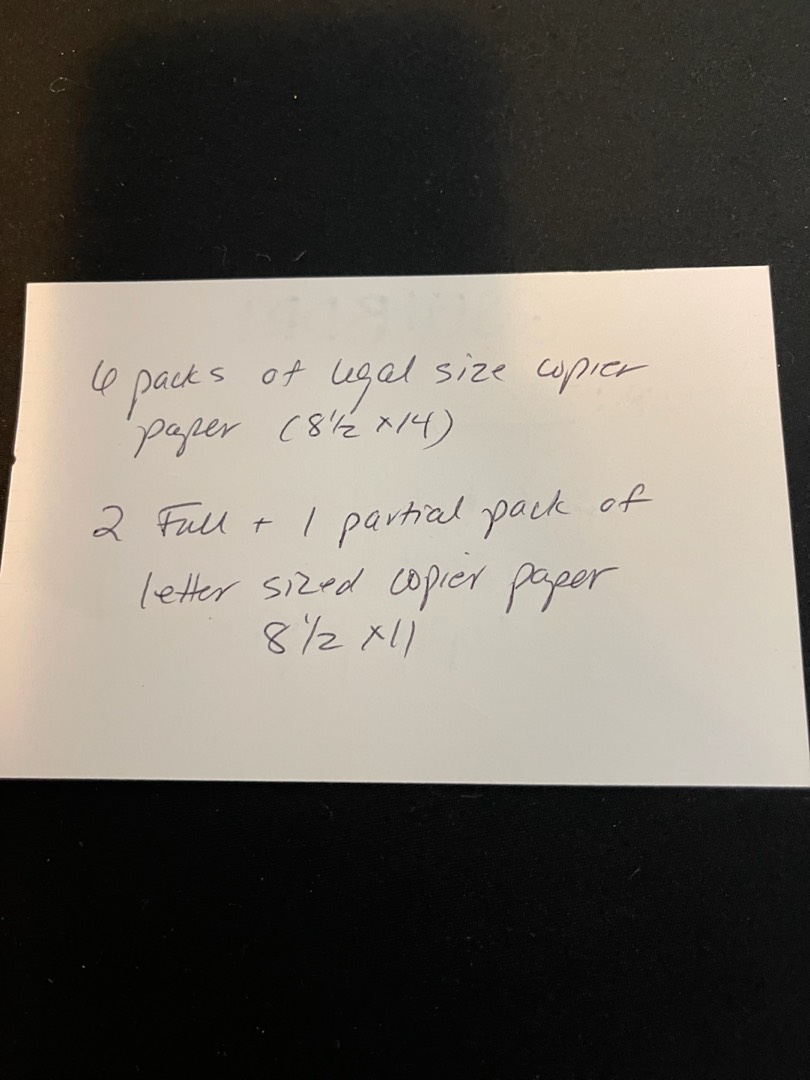 6 packs of legal size copier
paper (8 1/2 x14)
2 Full + 1 partial pack of
letter sized copier paper
8 1/2 x11